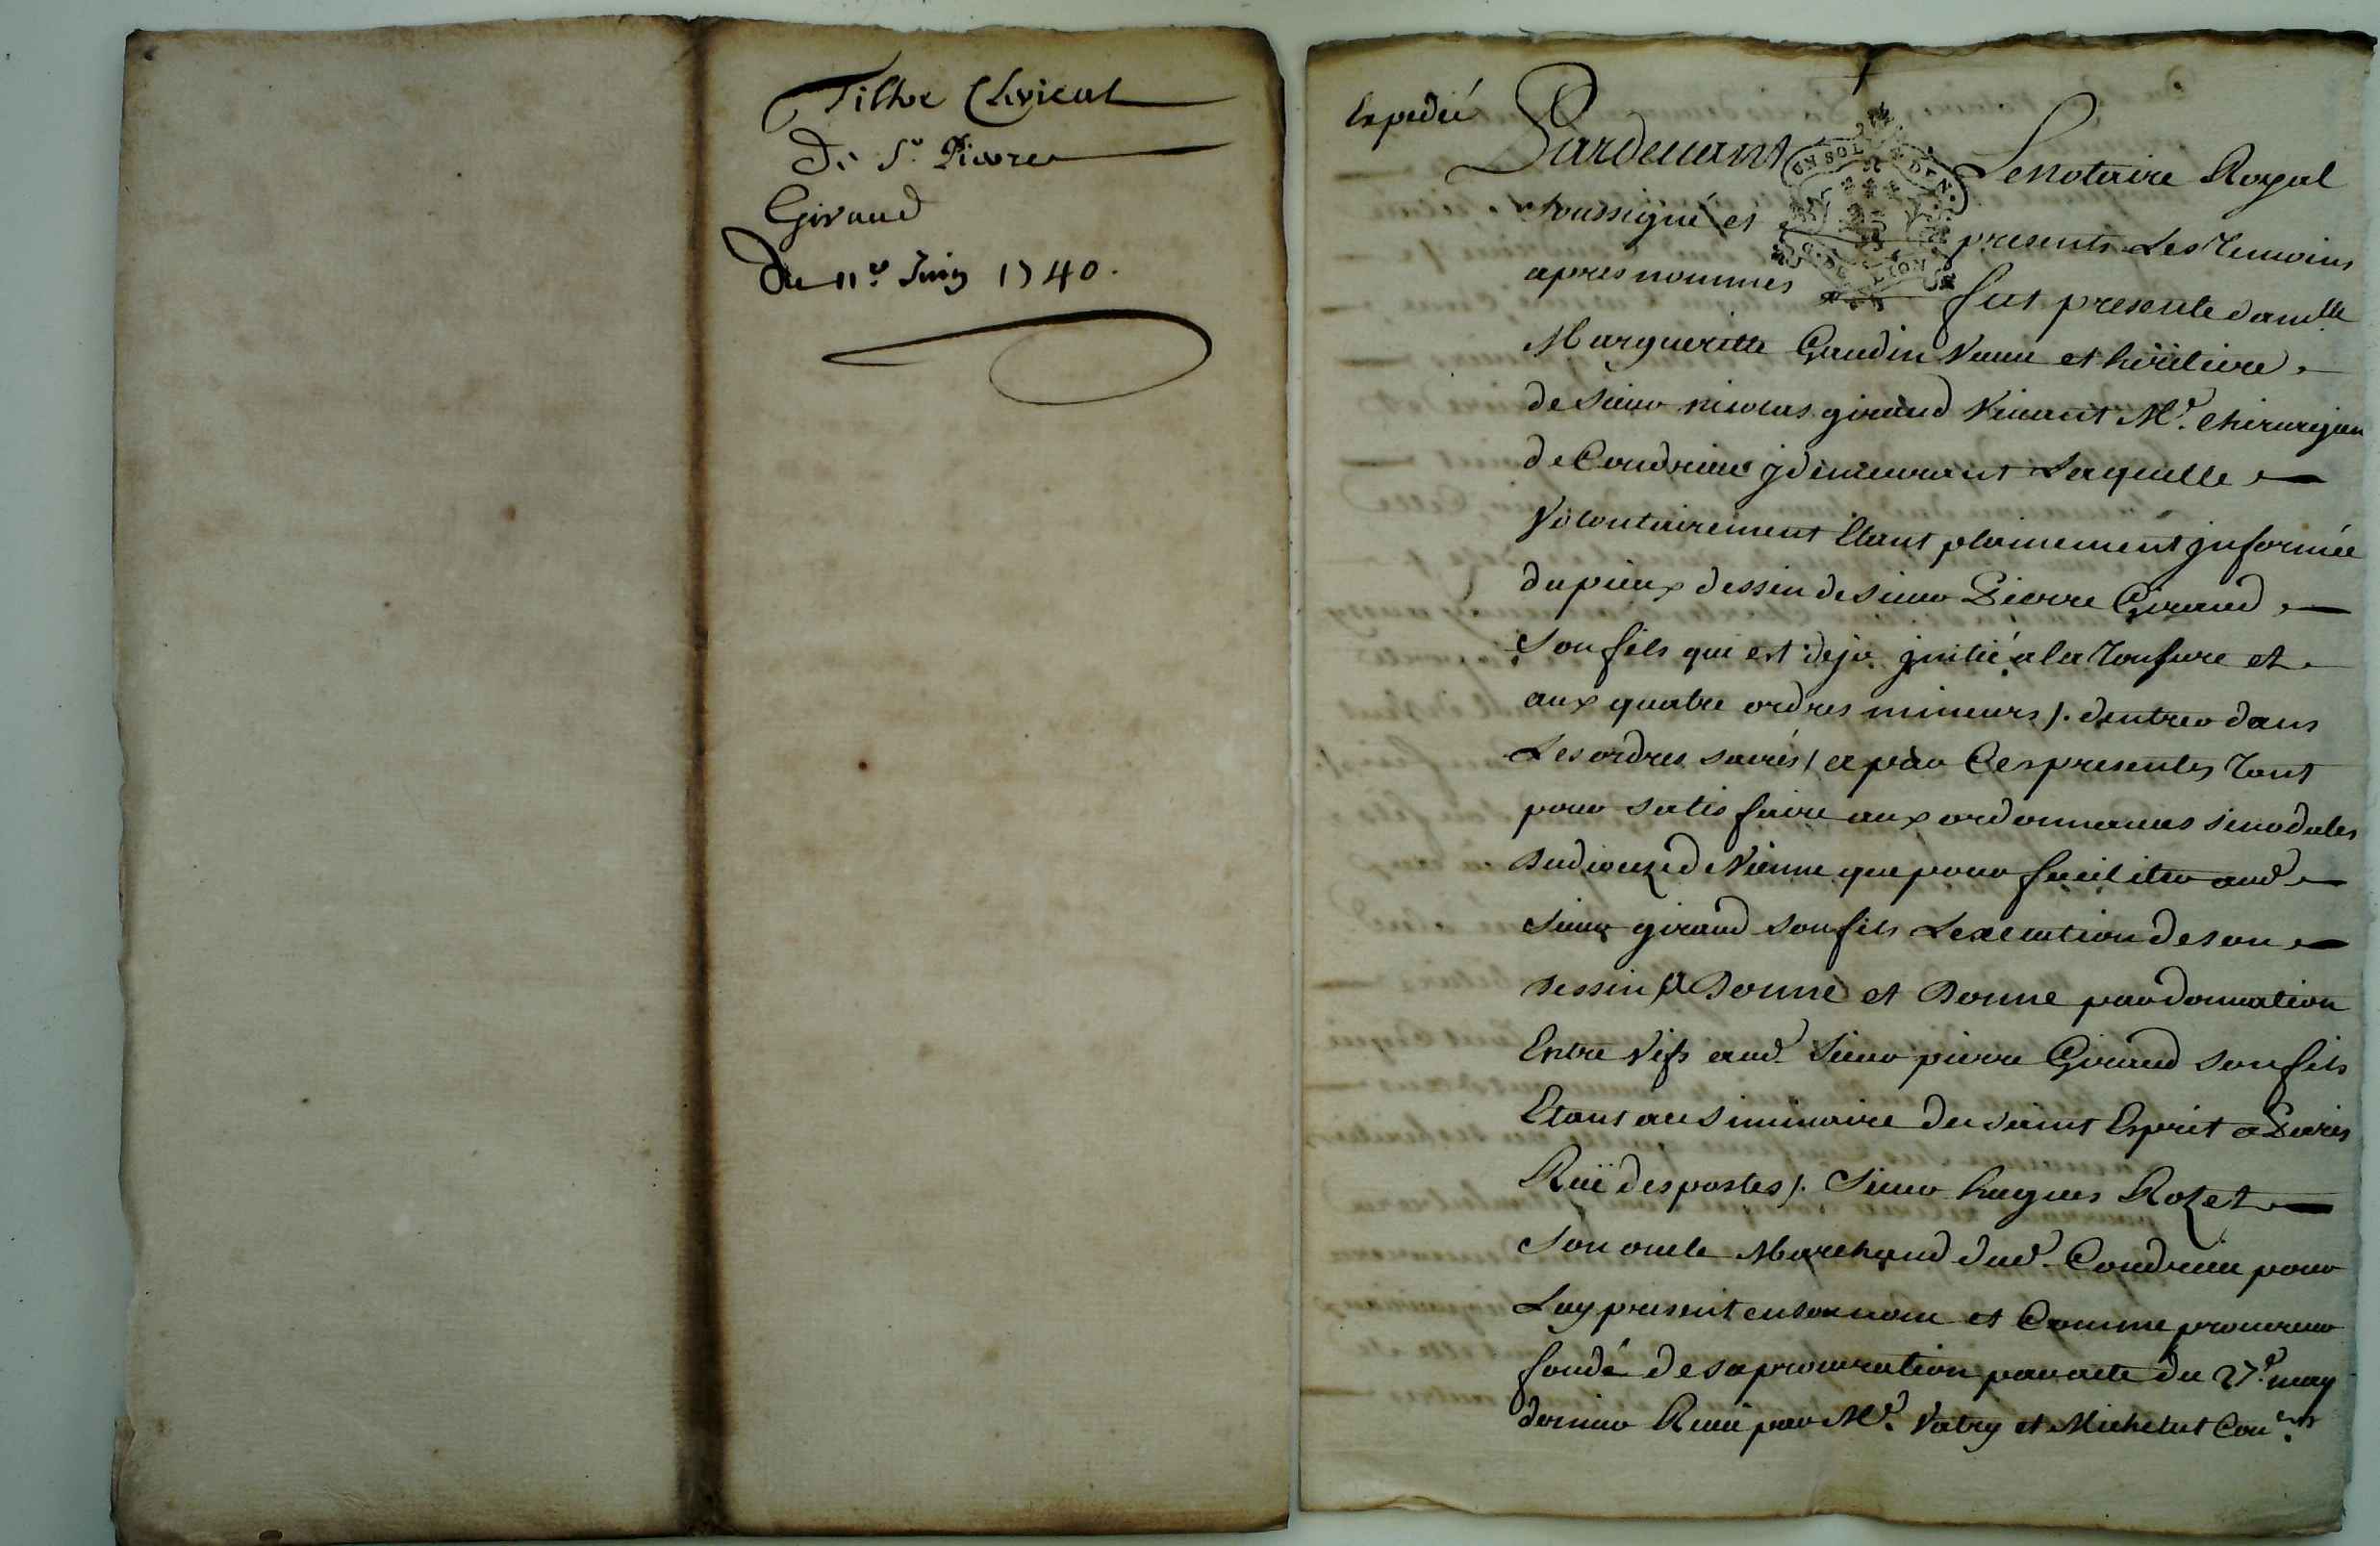 Tiltre Clerical
De Sr. Pierre
Giraud
Du 11e. Juin 1740.
Expedié
Pardevant Le notaire Royal
soussigné et presents Les Temoins
apres nommés fut presente damlle
Margueritte Gaudin Veuve et heritiere
de Sieur nicolas giraud Vivant Me. Chirurgien
de Condrieu y demeurant Laquelle
Volontairement Etant plainement jnformée
du pieux dessin de Sieur Pierre Giraud
Son fils qui est deja jnitié a la Tonsure et
aux quatre ordres mineurs /. dentrer dans
Les ordres sacrés / a par Ces presentes Tant
pour satisfaire aux ordonnances sinodales
du dioceze de Vienne que pour faciliter aud.
Sieur giraud Son fils Lexecution de son
dessin a donné et donne par donnation
Entre Vifs aud. Sieur pierre Giraud son fils
Etant au siminaire du saint Esprit a Paris
Ruë des postes /. Sieur hugues Rozet
Son oncle Marchand dud. Condrieu pour
Luy present en son nom et Comme procureur
fondé de sa procuration par acte du 27e. may
dernier Receu par Me. Vatry et Michelet Con.ers
UN SOL DEN.
G. DE LION